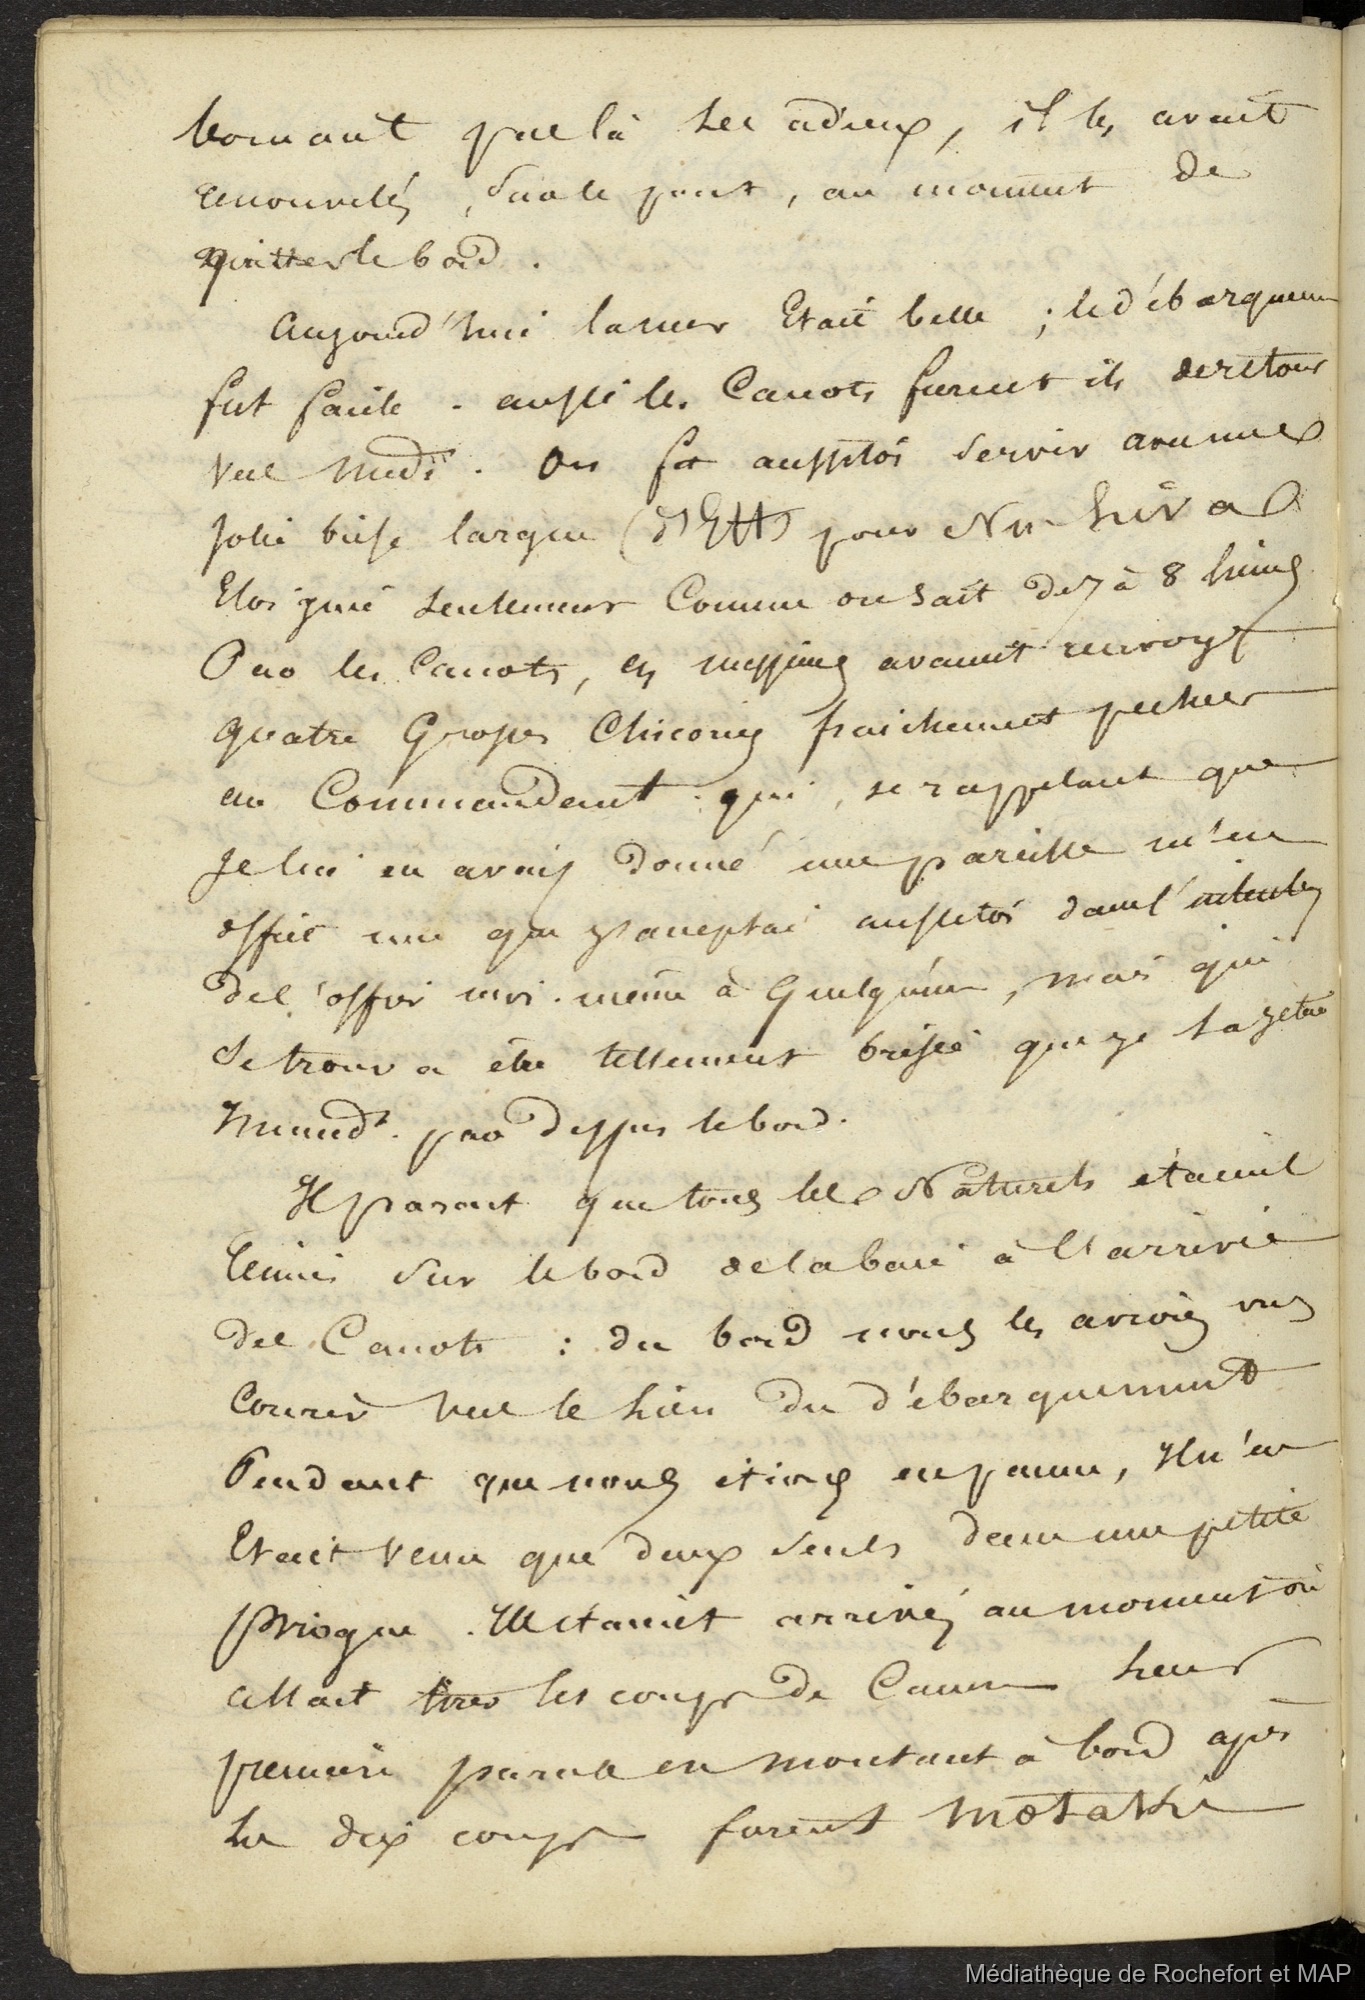 bornant pas là ses adieux, il les avait
renouvelés, sur le pont, au moment de
quitter le bord.
Aujourd'hui la mer Etait belle ; le débarquem
fut facile. aussi les Canots furent ils de retour
vers midi. On fit aussitôt servir avec une
jolie brise largue (d'E) pour Nu-hiva
Eloigné seulement Comme on sait de 7 à 8 lieues
Par les Canots, les missions avaient renvoyé
quatre Grosses Chicorées fraichement pechées
au Commandant qui, se rappelant que
Je lui en avais donné une pareille m'en
offrit une que j'acceptai aussitôt dans l'intention
de l'offrir moi-même à Quelqu'un, mais qui
se trouva être tellement brisée que je la jetai
immedt. par dessus le bord.
Il parait que tous les Naturels étaient
reunis sur le bord de la baie à l'arrivée
des Canots : du bord nous les avions vus
Courir vers le lieu du débarquement
Pendant que nous étions en panne, Il n'en
Etait venu que deux seuls dans une petite
pirogue. Ils étaient arrivés au moment où
allait tirer les coups de Canon leurs
premiere parole en montant à bord après
les dix coups furent motaki